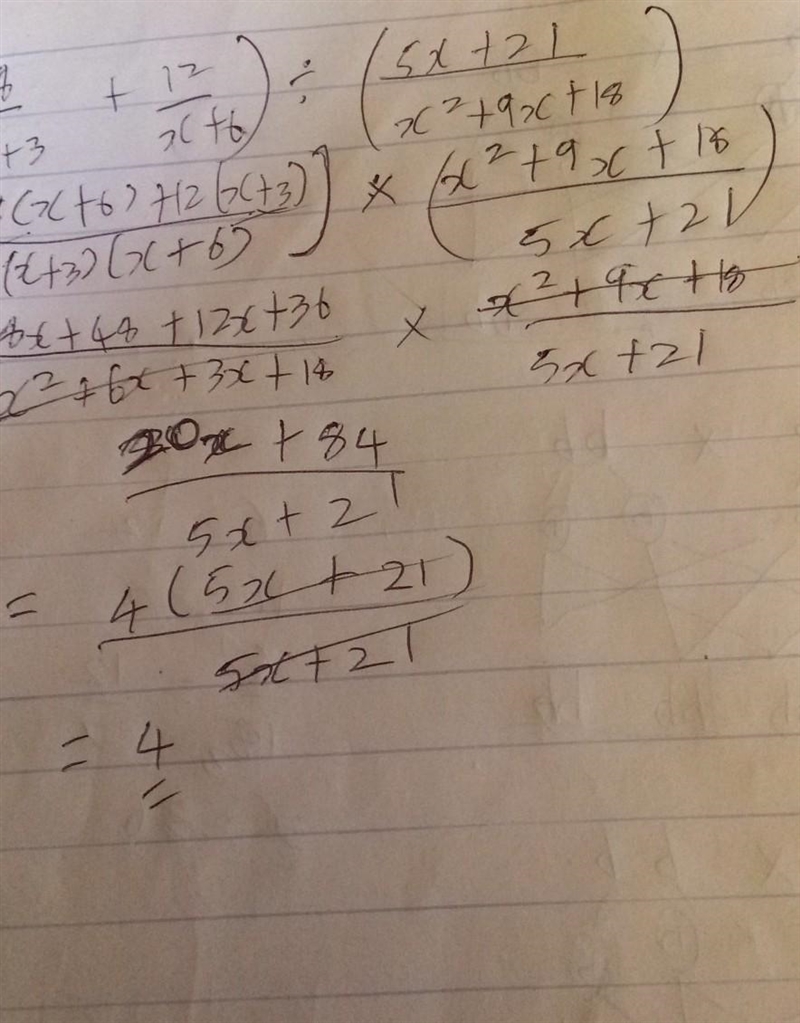 8/+3 + 12/x+6) ÷ (5x+21/x²+9x+18)
(x+6)+12(x+3)]/(x+3)(x+6) × (x²+9x+18/5x+21)
8x+48+12x+36/x²+6x+3x+18 × x²+9x+18/5x+21
20x+84/5x+21
= 4(5x+21)/5x+21
= 4